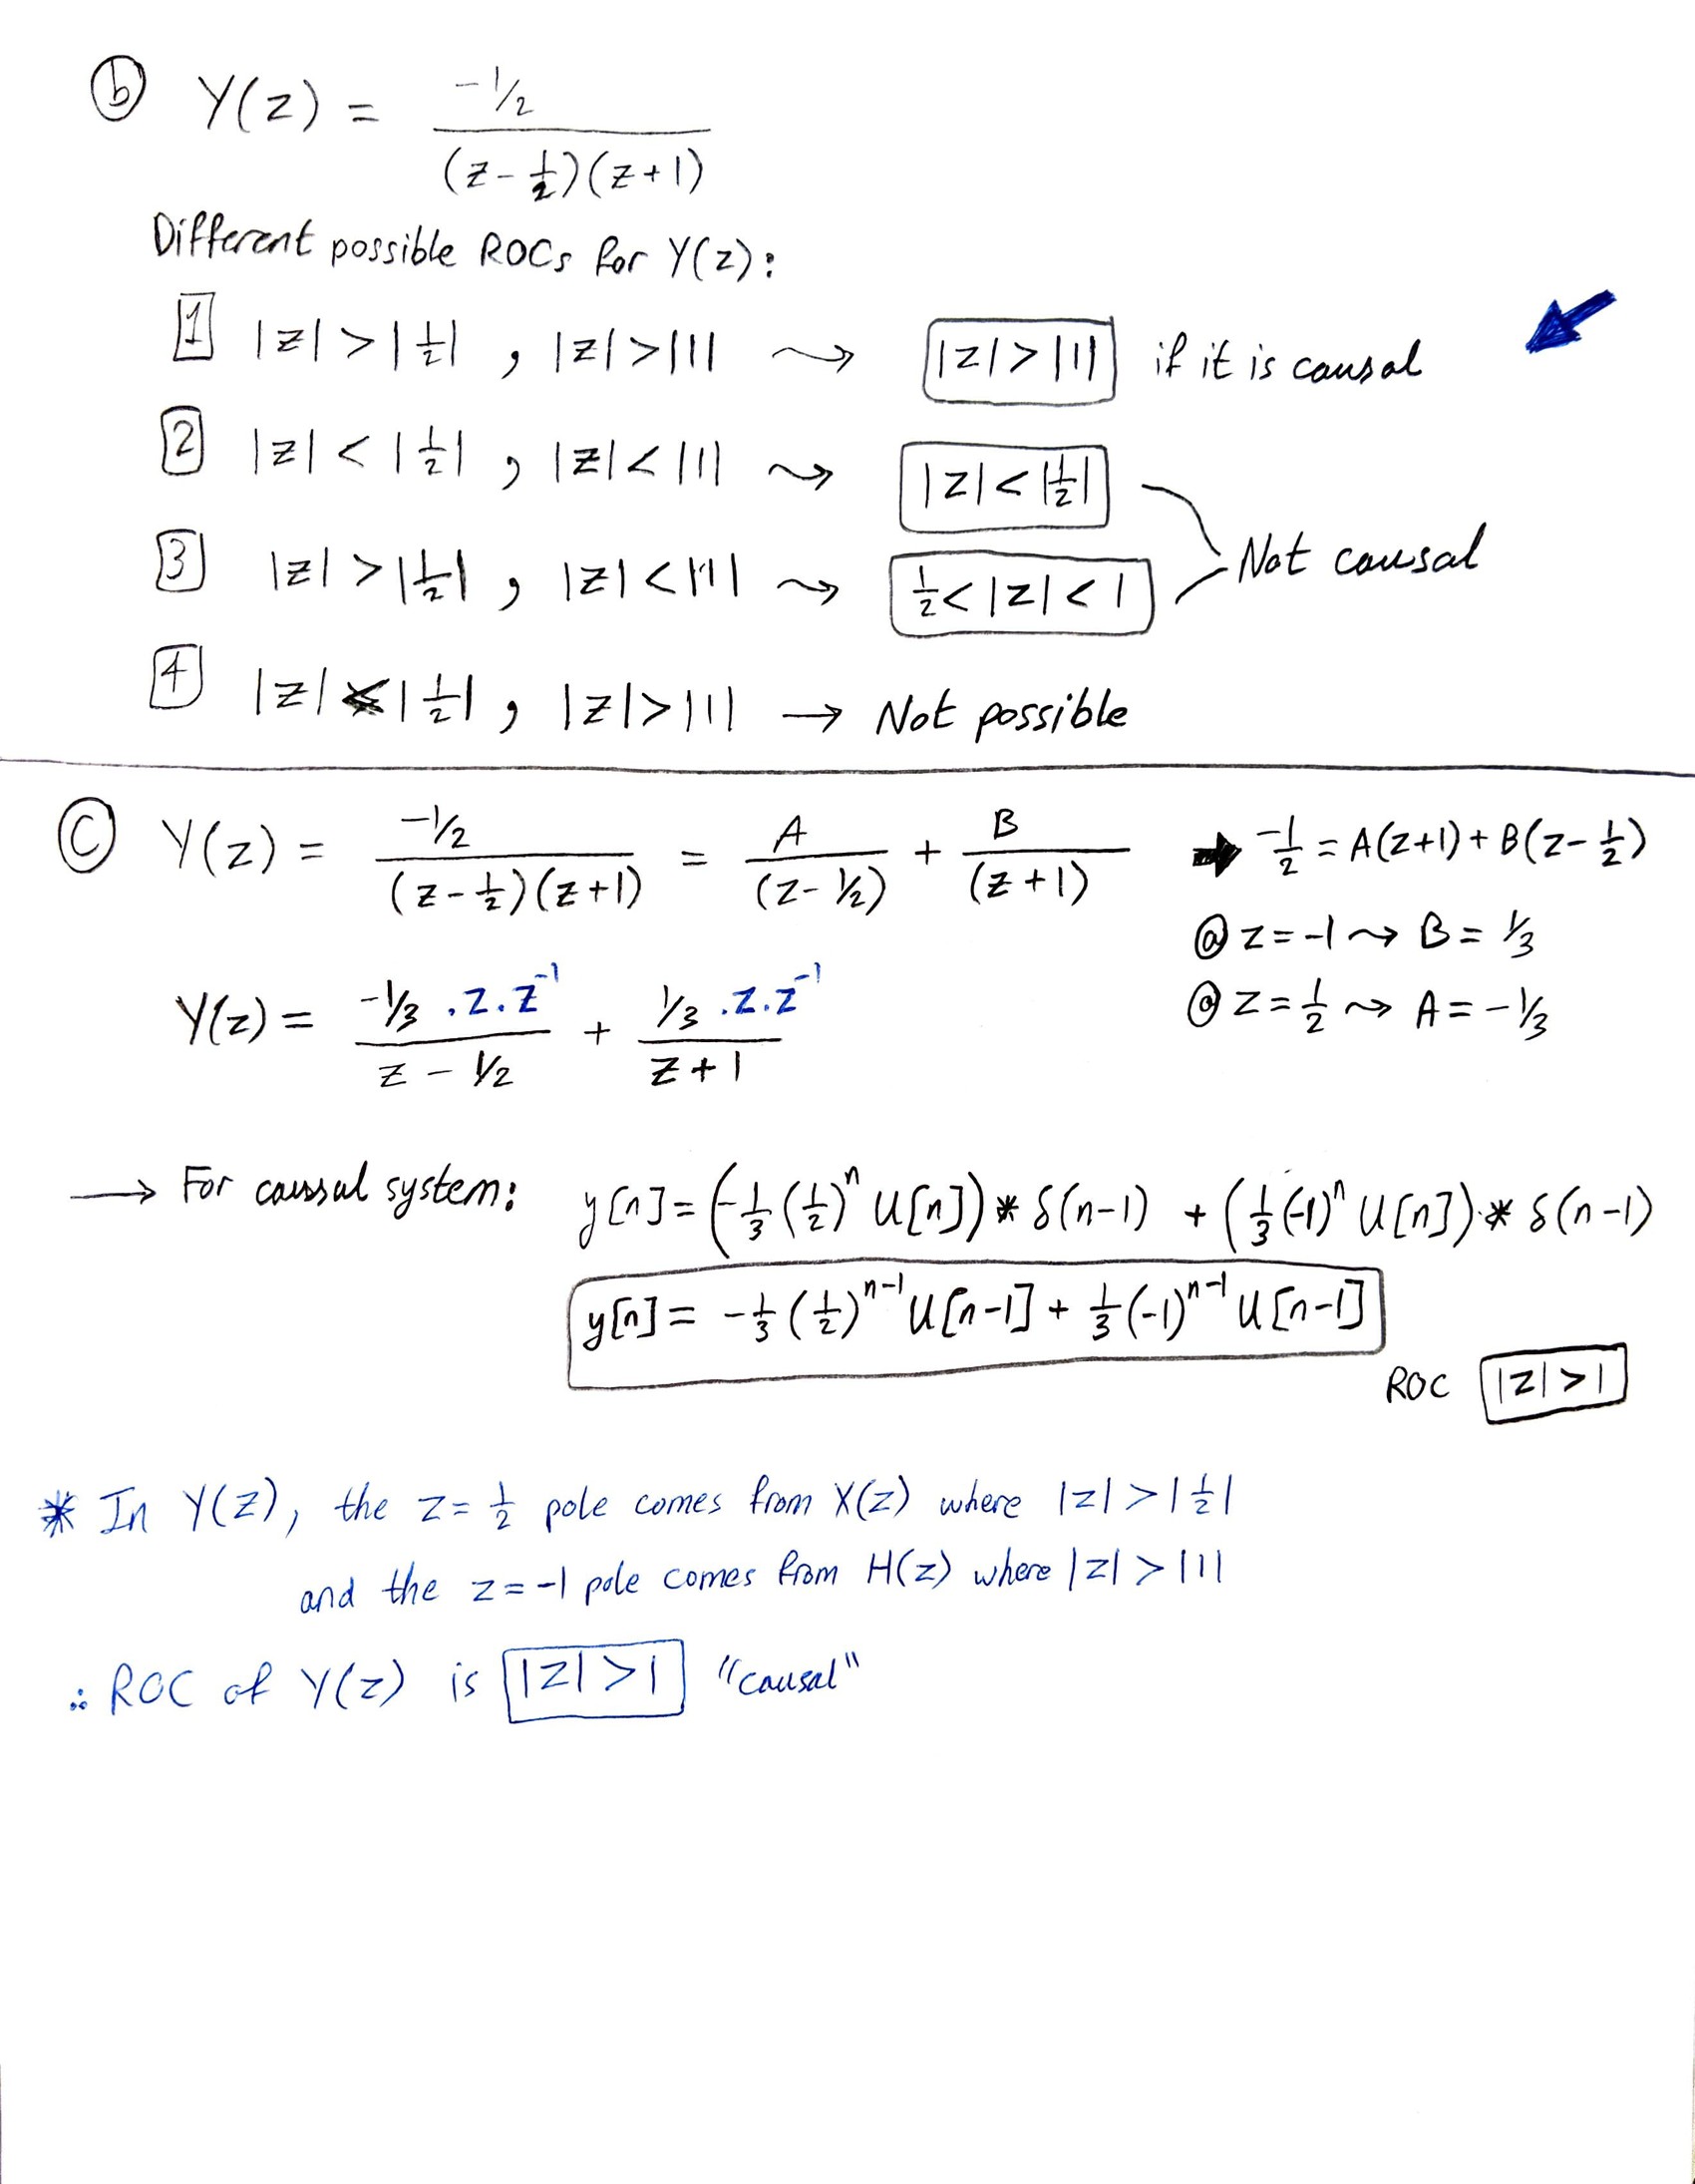 ⓑ Y(z) = -1/2 / (z - 1/2)(z + 1)
Different possible ROCs for Y(z):
1 |z| > |1/2| , |z| > |1| ⇝ |z| > |1| if it is causal
2 |z| < |1/2| , |z| < |1| ⇝ |z| < |1/2|
3 |z| > |1/2| , |z| < |1| ⇝ 1/2 < |z| < 1
Not causal
4 |z| < |1/2| , |z| > |1| → Not possible
ⓒ Y(z) = -1/2 / (z - 1/2)(z + 1) = A / (z - 1/2) + B / (z + 1) ➡ -1/2 = A(z+1) + B(z - 1/2)
@ z = -1 ⇝ B = 1/3
@ z = 1/2 ⇝ A = -1/3
Y(z) = -1/3 . z . z^-1 / z - 1/2 + 1/3 . z . z^-1 / z + 1
→ For caussal system: y[n] = (-1/3 (1/2)^n U[n]) * δ(n-1) + (1/3 (-1)^n U[n]) * δ(n-1)
y[n] = -1/3 (1/2)^n-1 U[n-1] + 1/3 (-1)^n-1 U[n-1]
ROC |z| > 1
* In Y(z), the z = 1/2 pole comes from X(z) where |z| > |1/2|
and the z = -1 pole comes from H(z) where |z| > |1|
∴ ROC of Y(z) is |z| > 1 "causal"